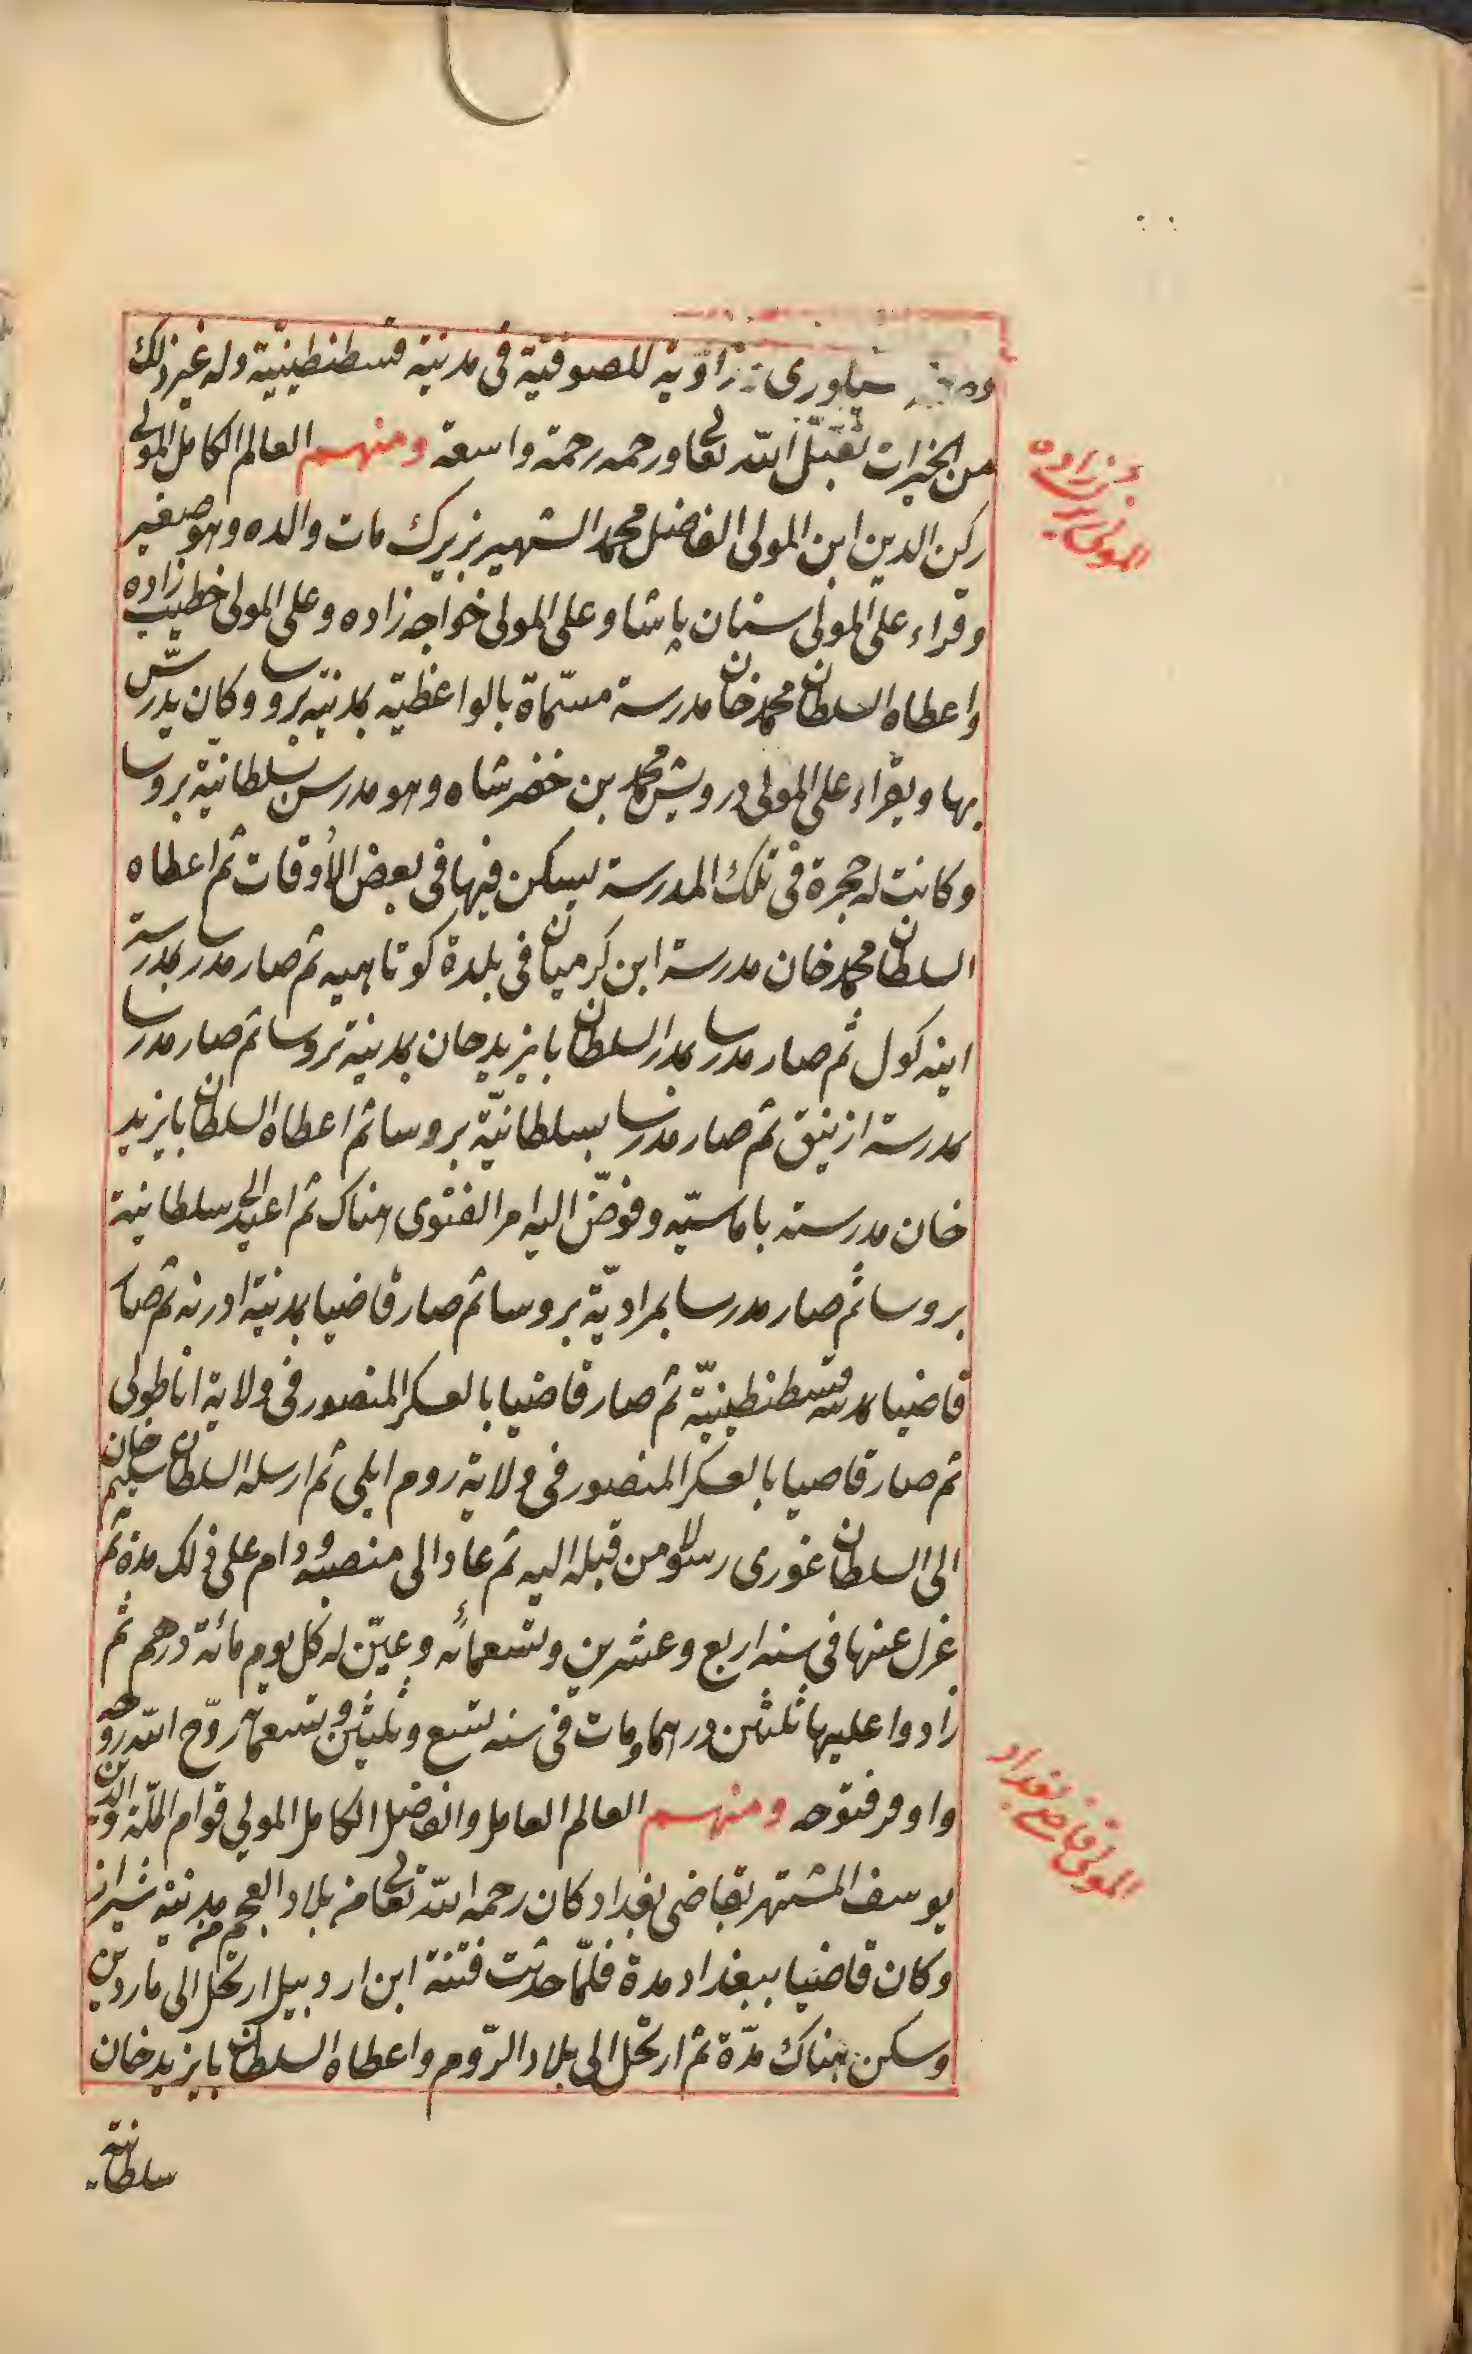 سيلورى زاوية للصوفية فى مدينة قسطنطينية وله غير ذلك
من الخيرات تقبّل الله تعالى ورحمه رحمة واسعة ومنهم العالم الكامل المولى
ركن الدين ابن المولى الفاضل محمد الشهير بزيرك مات والده وهو صغير
وقراء على المولى سنان پاشا وعلى المولى خواجه زاده وعلى المولى خطيب زاده
واعطاه السلطان محمد خان مدرسة مسمّاة بالواعظيّة بمدينة بروسا وكان يدرّس
بها ويقراء على المولى درويش محمد بن خضر شاه وهو مدرس بسلطانيّة بروسا
وكانت له حجرة فى تلك المدرسة يسكن فيها فى بعض الأوقات ثم اعطاه
السلطان محمد خان مدرسة ابن كرميان فى بلدة كوتاهيه ثم صار مدرسا بمدرسة
اينه كول ثم صار مدرسا بمدرسة السلطان بايزيد خان بمدينة بروسا ثم صار مدرسا
بمدرسة ازنيق ثم صار مدرسا بسلطانيّة بروسا ثم اعطاه السلطان بايزيد
خان مدرسته باماسيّه وفوّض اليه امر الفتوى هناك ثم اعيد الى سلطانية
بروسا ثم صار مدرسا بمراديّة بروسا ثم صار قاضيا بمدينة ادرنه ثم صار
قاضيا بمدينة قسطنطينيّة ثم صار قاضيا بالعسكر المنصور فى ولاية اناطولى
ثم صار قاضيا بالعسكر المنصور فى ولاية روم ايلى ثم ارسله السلطان سليم خان
الى السلطان غورى رسولا من قبله اليه ثم عاد الى منصبه ودام على ذلك مدة ثم
عزل عنها فى سنه اربع وعشرين وتسعمائه وعيّن له كل يوم مائة درهم ثم
زادوا عليها ثلثين درهما ومات فى سنه تسع وثلثين وتسعمائة روّح الله روحه
واوفر فتوحه ومنهم العالم العامل والفاضل الكامل المولى قوام الملّة والدين
يوسف المشتهر بقاضى بغداد كان رحمه الله تعالى من بلاد العجم من مدينة شيراز
وكان قاضيا ببغداد مدة فلمّا حدثت فتنة ابن اردبيل ارتحل الى ماردين
وسكن هناك مدّة ثم ارتحل الى بلاد الرّوم واعطاه السلطان بايزيد خان
سلطانية
المولى زيرك زاده
المولى قاضى بغداد